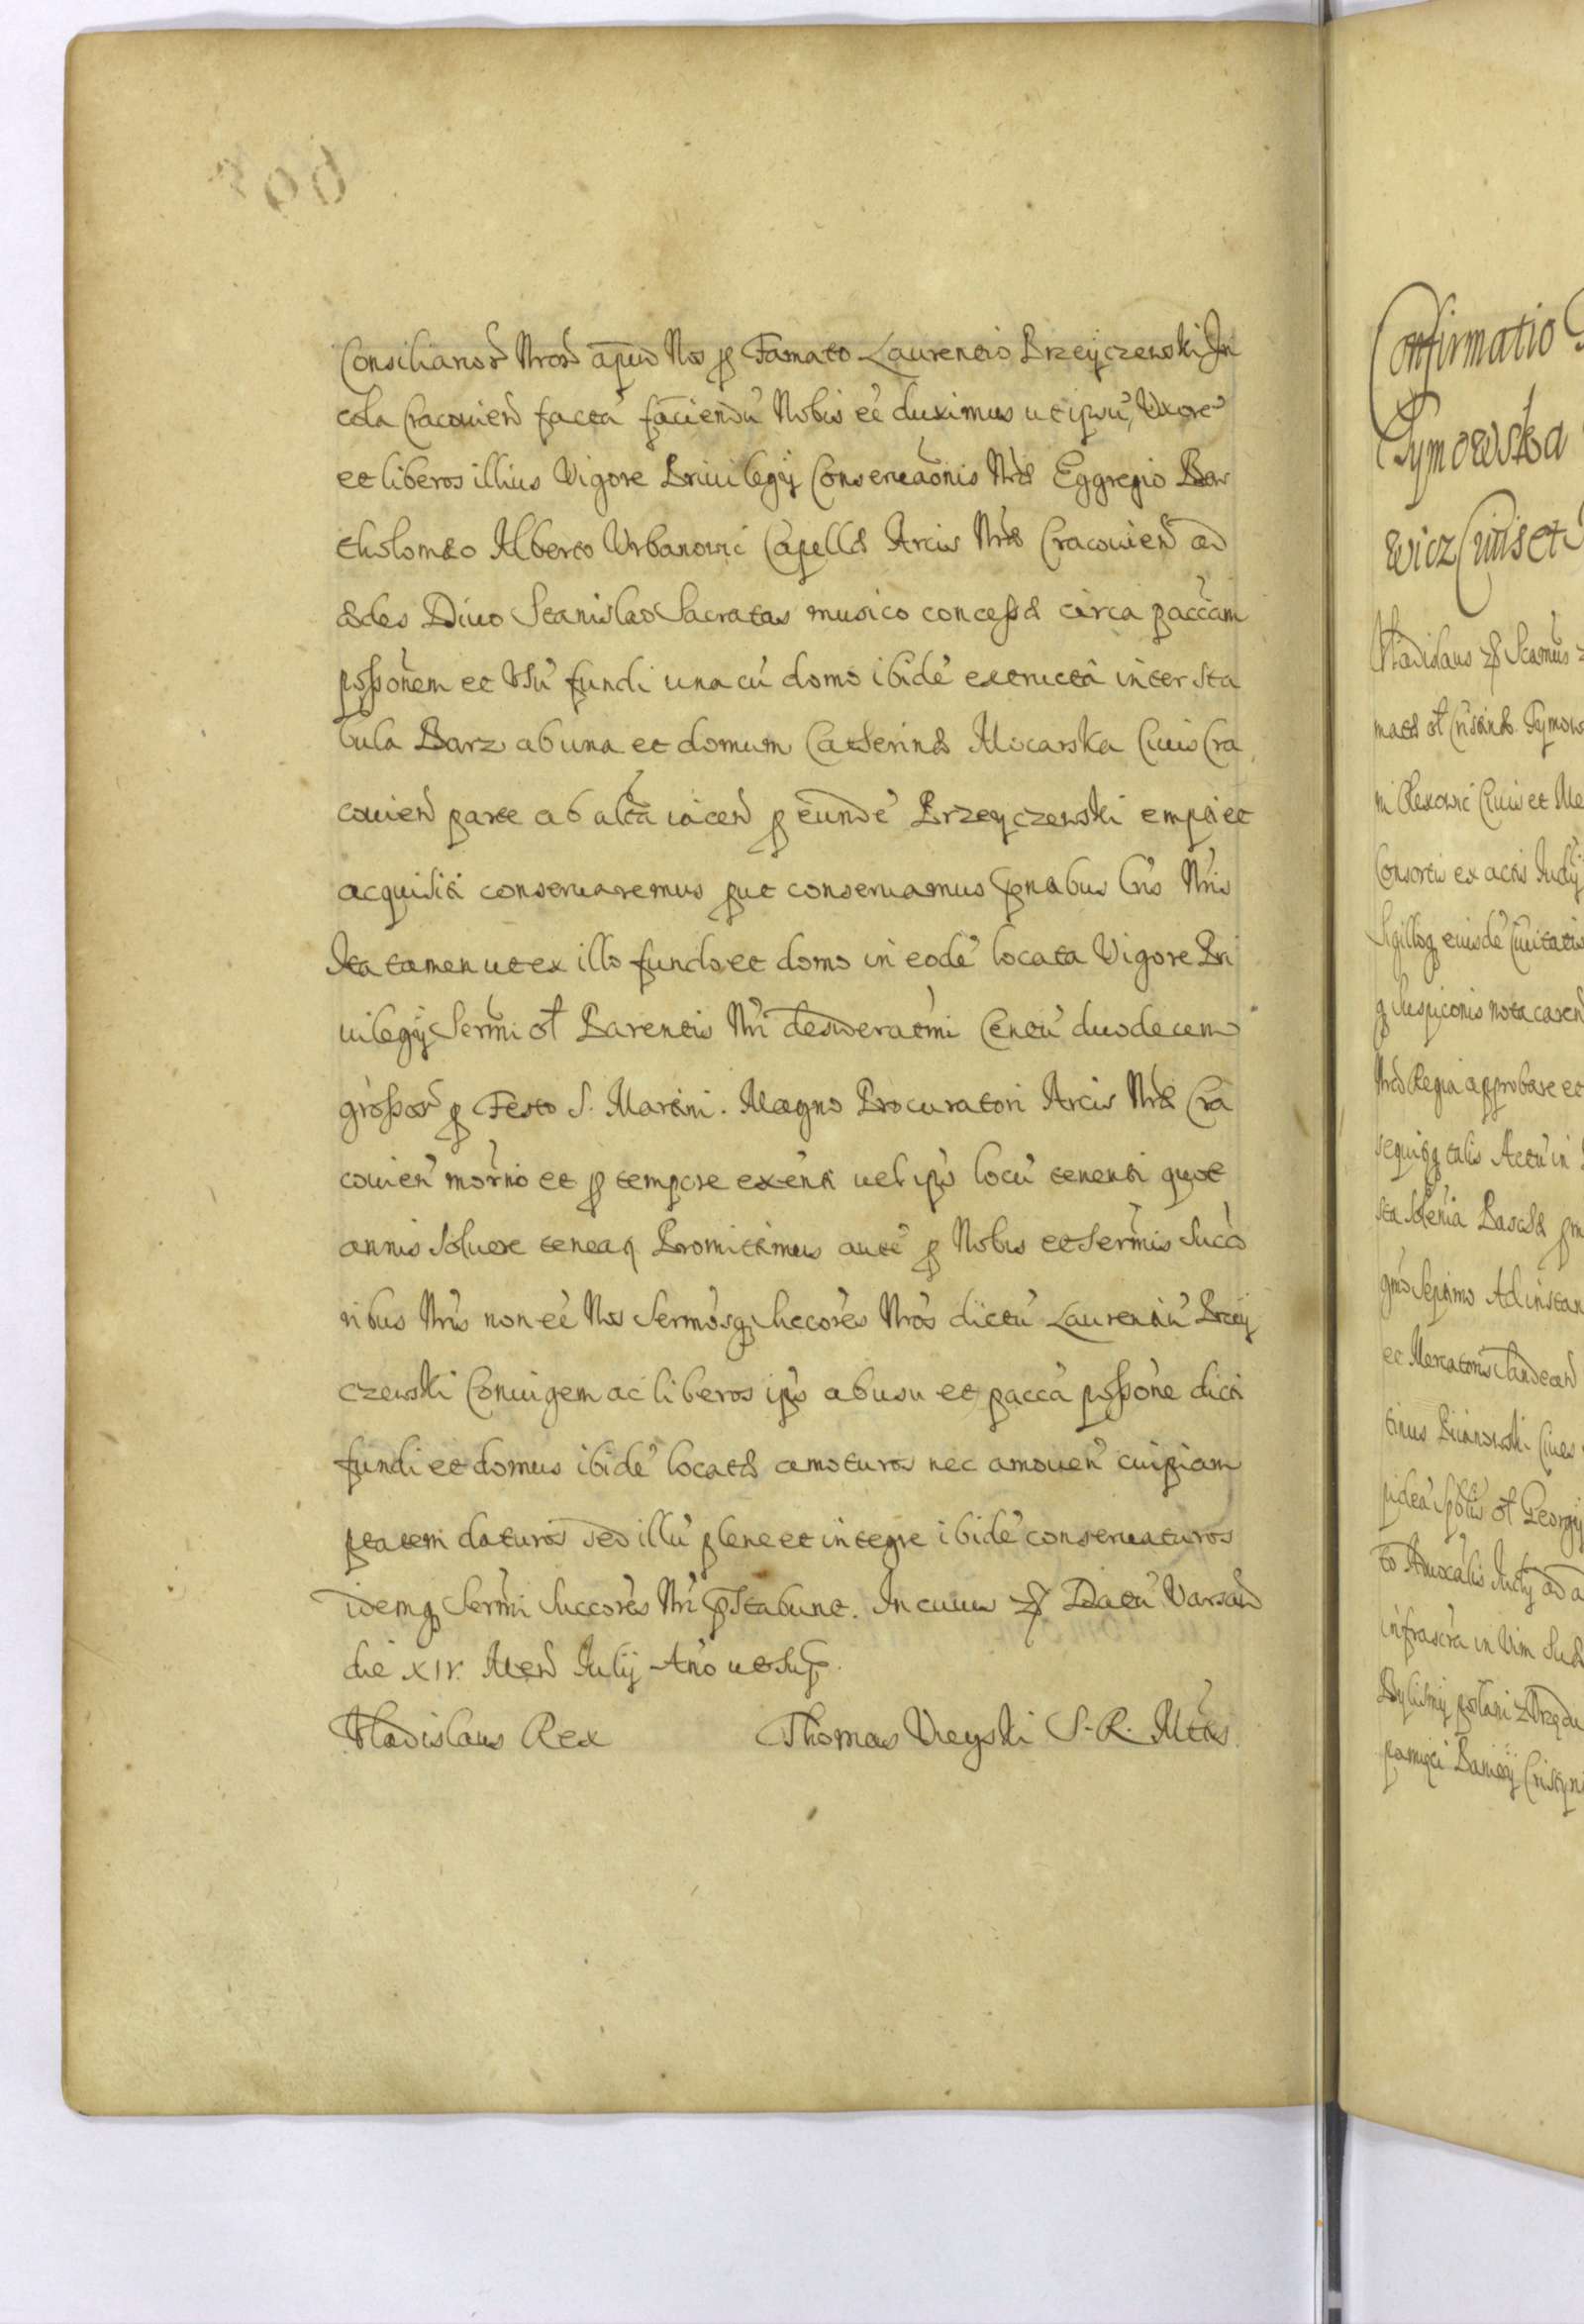 Consiliarior Nror apud Nos p Famato Laurentio Brzeyczewski In
cola Cracovien facta faciendu Nobis ee duximus ut ipsu, Uxore
et liberos illius Vigore Privilegij Conservaonis Nræ Eggregio Bar
tholomæo Alberto Urbanovic Capellæ Arcis Nræ Cracovien ad
ædes Divo Stanislao Sacratas musico concessæ circa paccam
possonem et Usu fundi una cu domo ibide extructa inter sta
bula Barz ab una et domum Catherinæ Mocarska Civis Cra
covien parte ab alta iacen p eunde Brzeyczewski empti et
acquisiti conservaremus put conservamus pntibus lris Nris
Ita tamen ut ex illo fundo et domo in eode locata Vigore Pri
vilegij Sermi ol Parentis Nri desideratmi Censu duodecem
grossor p Festo S. Martini. Magno Procuratori Arcis Nræ Cra
covien morno et p tempore exenti vel ips locu tenenti quot
annis solvere teneaq Promittimus aute p Nobis et Sermis Succo
ribus Nris non ee Nos Sermosq Succores Nros dictu Laurentiu Brzey
czewski Coniugem ac liberos ips ab usu et pacca possone dicti
fundi et domus ibide locatæ amoturos nec amoven cuipiam
ptatem daturos sed illu plene et integre ibide conservaturos
idemq Sermi Succores Nri pstabunt. In cuius Datu Varsav
die XIV. Men Julij Ano ut sup.
Vladislaus Rex Thomas Uieyski S. R. Mtis
Confirmatio
Tymowska
wicz Civis et
Vladislaus Scamus
matæ ol Cristinæ Tymow
Civis et Me
Consortis ex actis Judij
Sigilloq eiusde Civitatis
q suspiconis nota caren
Nra Regia approbare et
sequitq talis Actu in
sta Solenia Pascæ pm
gmo Septimo Ad instan
et Mercatoris Sandecen
tinus Cives
ol Georgij
to Advocalis Judij ad a
infrascra in Vim Suæ
Bylismy
pamięci Paniey Cristyni